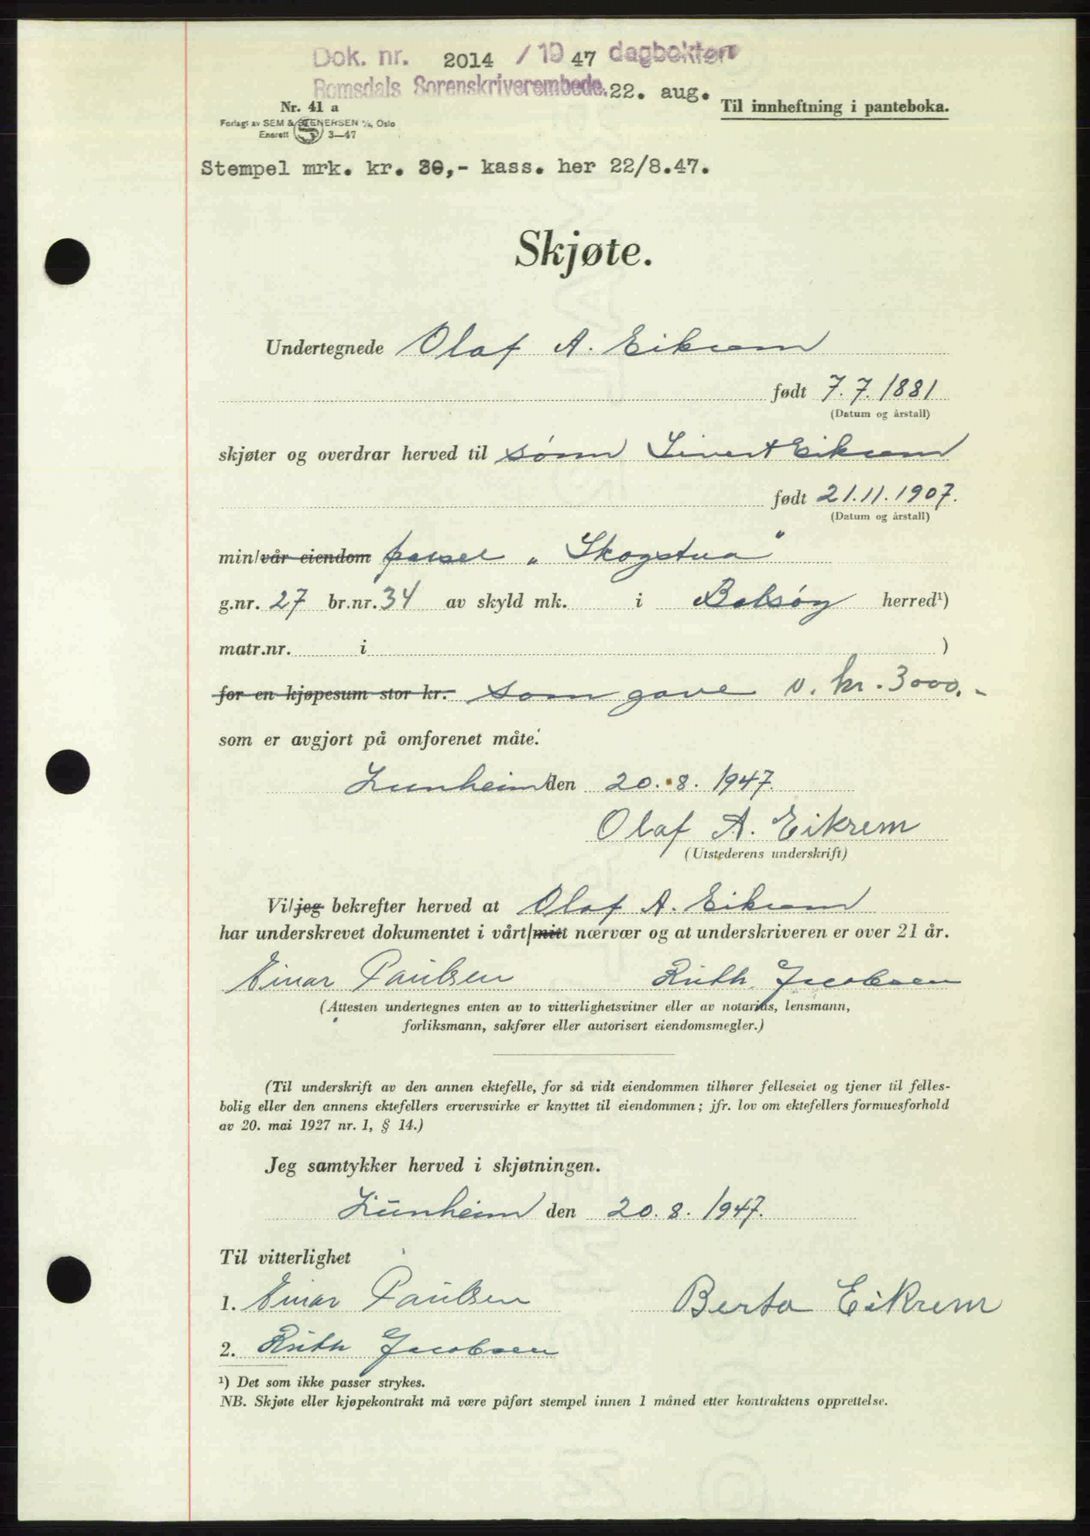 Dok. nr. 2014 /1947 dagbokten
Romsdals Sorenskriverembede. 22. aug.
Nr. 41 a
Til innheftning i panteboka.
Forlagt av SEM & STENERSEN A/S, Oslo
Enerett 3—47
Stempel mrk. kr. 30,- kass. her 22/8.47.
Skjøte.
Undertegnede Olaf A. Eikrem
født 7.7.1881
(Datum og årstall)
skjøter og overdrar herved til sønn Sivert Eikrem
født 21.11.1907.
(Datum og årstall)
min/vår eiendom parsel „Skogstua"
g.nr. 27 br.nr. 34 av skyld mk. i Bolsøy herred¹)
matr.nr. i )
for en kjøpesum stor kr. som gave v. kr. 3000,-
som er avgjort på omforenet måte.
Lunheim den 20.8.1947.
Olaf A. Eikrem
(Utstederens underskrift)
Vi/jeg bekrefter herved at Olaf A. Eikrem
har underskrevet dokumentet i vårt/mitt nærvær og at underskriveren er over 21 år.
Einar Paulsen Ruth Jacobsen
(Attesten undertegnes enten av to vitterlighetsvitner eller av notarius, lensmann,
forliksmann, sakfører eller autorisert eiendomsmegler.)
(Til underskrift av den annen ektefelle, for så vidt eiendommen tilhører felleseiet og tjener til felles-
bolig eller den annens ektefellers ervervsvirke er knyttet til eiendommen; jfr. lov om ektefellers formuesforhold
av 20. mai 1927 nr. 1, § 14.)
Jeg samtykker herved i skjøtningen.
Lunheim den 20.8.1947.
Til vitterlighet
1. Einar Paulsen Berta Eikrem
2. Ruth Jacobsen
¹) Det som ikke passer strykes.
NB. Skjøte eller kjøpekontrakt må være påført stempel innen 1 måned etter kontraktens opprettelse.